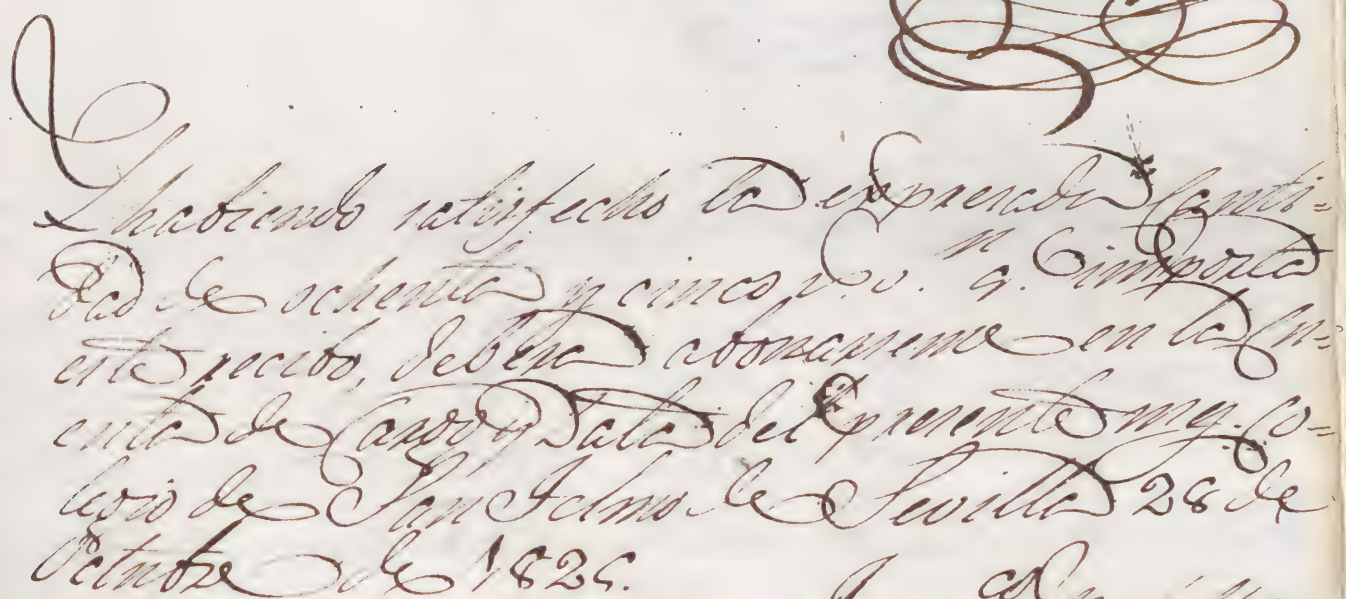 Y habiendo satisfecho la expresada Canti=
dad de ochenta y cinco r.s v.n q.e importa
este recibo, deberá abonarseme en la Cu=
enta de Cargo y Data del presente mes. Co=
legio de San Telmo de Sevilla 28 de
Octubre de 1825.